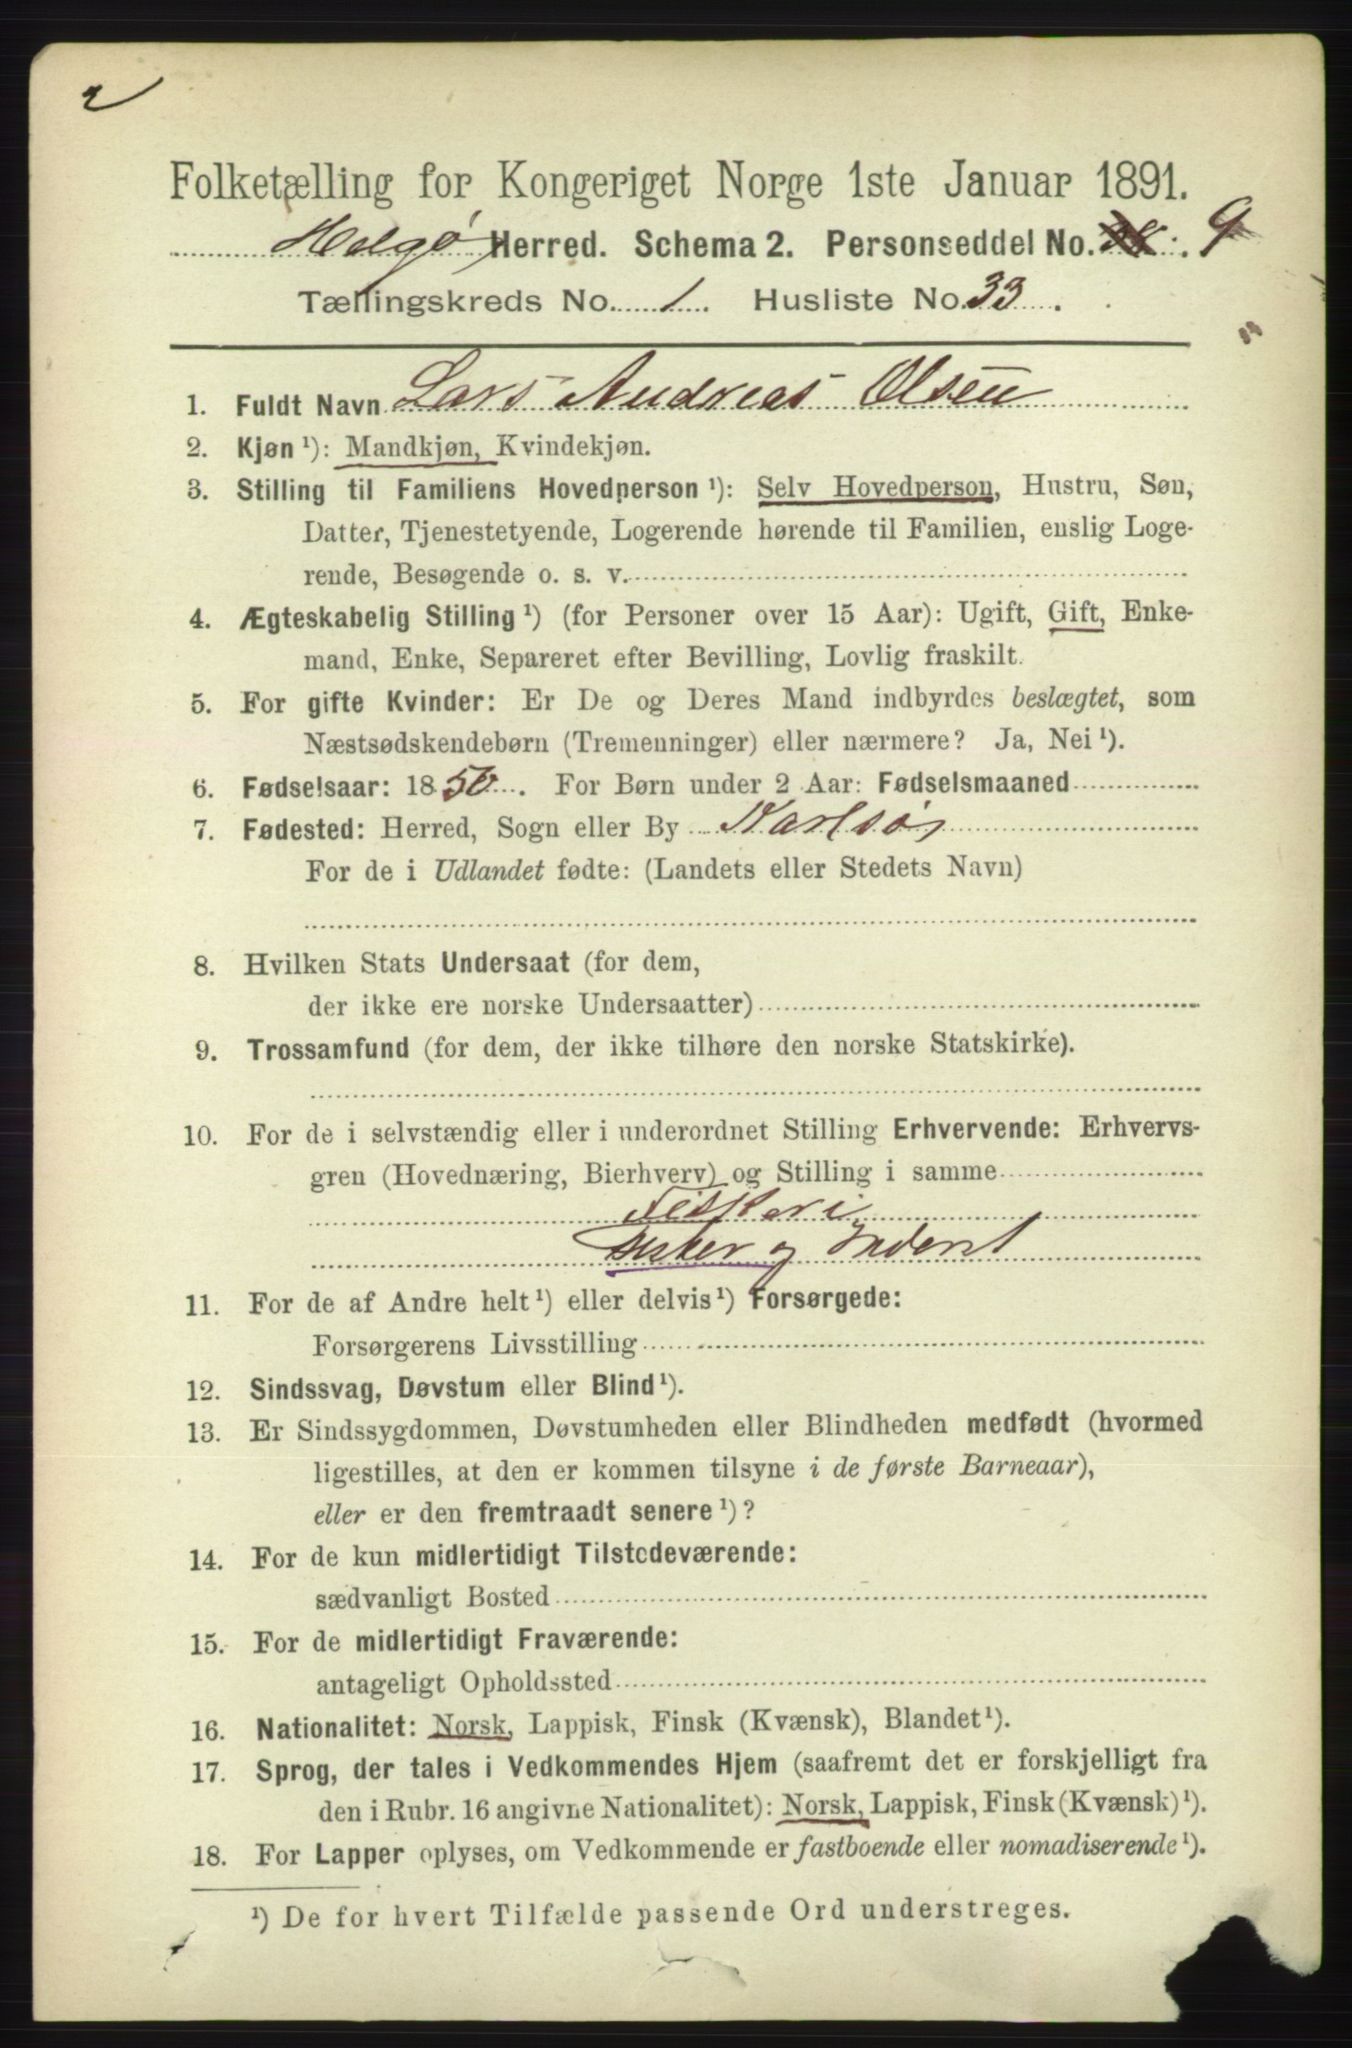 2
Folketælling for Kongeriget Norge 1ste Januar 1891.
Helgø Herred. Schema 2. Personseddel No. 9
Tællingskreds No. 1. Husliste No. 33.
1. Fuldt Navn Lars Andreas Olsen
2. Kjøn ¹): Mandkjøn, Kvindekjøn.
3. Stilling til Familiens Hovedperson ¹): Selv Hovedperson, Hustru, Søn,
Datter, Tjenestetyende, Logerende hørende til Familien, enslig Loge-
rende, Besøgende o. s. v.
4. Ægteskabelig Stilling ¹) (for Personer over 15 Aar): Ugift, Gift, Enke-
mand, Enke, Separeret efter Bevilling, Lovlig fraskilt.
5. For gifte Kvinder: Er De og Deres Mand indbyrdes beslægtet, som
Næstsødskendebørn (Tremenninger) eller nærmere? Ja, Nei ¹).
6. Fødselsaar: 1850. For Børn under 2 Aar: Fødselsmaaned
7. Fødested: Herred, Sogn eller By Karlsø
For de i Udlandet fødte: (Landets eller Stedets Navn)
8. Hvilken Stats Undersaat (for dem,
der ikke ere norske Undersaatter)
9. Trossamfund (for dem, der ikke tilhøre den norske Statskirke).
10. For de i selvstændig eller i underordnet Stilling Erhvervende: Erhvervs-
gren (Hovednæring, Bierhverv) og Stilling i samme
Fiskeri
Fisker og Inderst
11. For de af Andre helt ¹) eller delvis ¹) Forsørgede:
Forsørgerens Livsstilling
12. Sindssvag, Døvstum eller Blind ¹).
13. Er Sindssygdommen, Døvstumheden eller Blindheden medfødt (hvormed
ligestilles, at den er kommen tilsyne i de første Barneaar),
eller er den fremtraadt senere ¹)?
14. For de kun midlertidigt Tilstedeværende:
sædvanligt Bosted
15. For de midlertidigt Fraværende:
antageligt Opholdssted
16. Nationalitet: Norsk, Lappisk, Finsk (Kvænsk), Blandet ¹).
17. Sprog, der tales i Vedkommendes Hjem (saafremt det er forskjelligt fra
den i Rubr. 16 angivne Nationalitet): Norsk, Lappisk, Finsk (Kvænsk) ¹).
18. For Lapper oplyses, om Vedkommende er fastboende eller nomadiserende ¹).
¹) De for hvert Tilfælde passende Ord understreges.